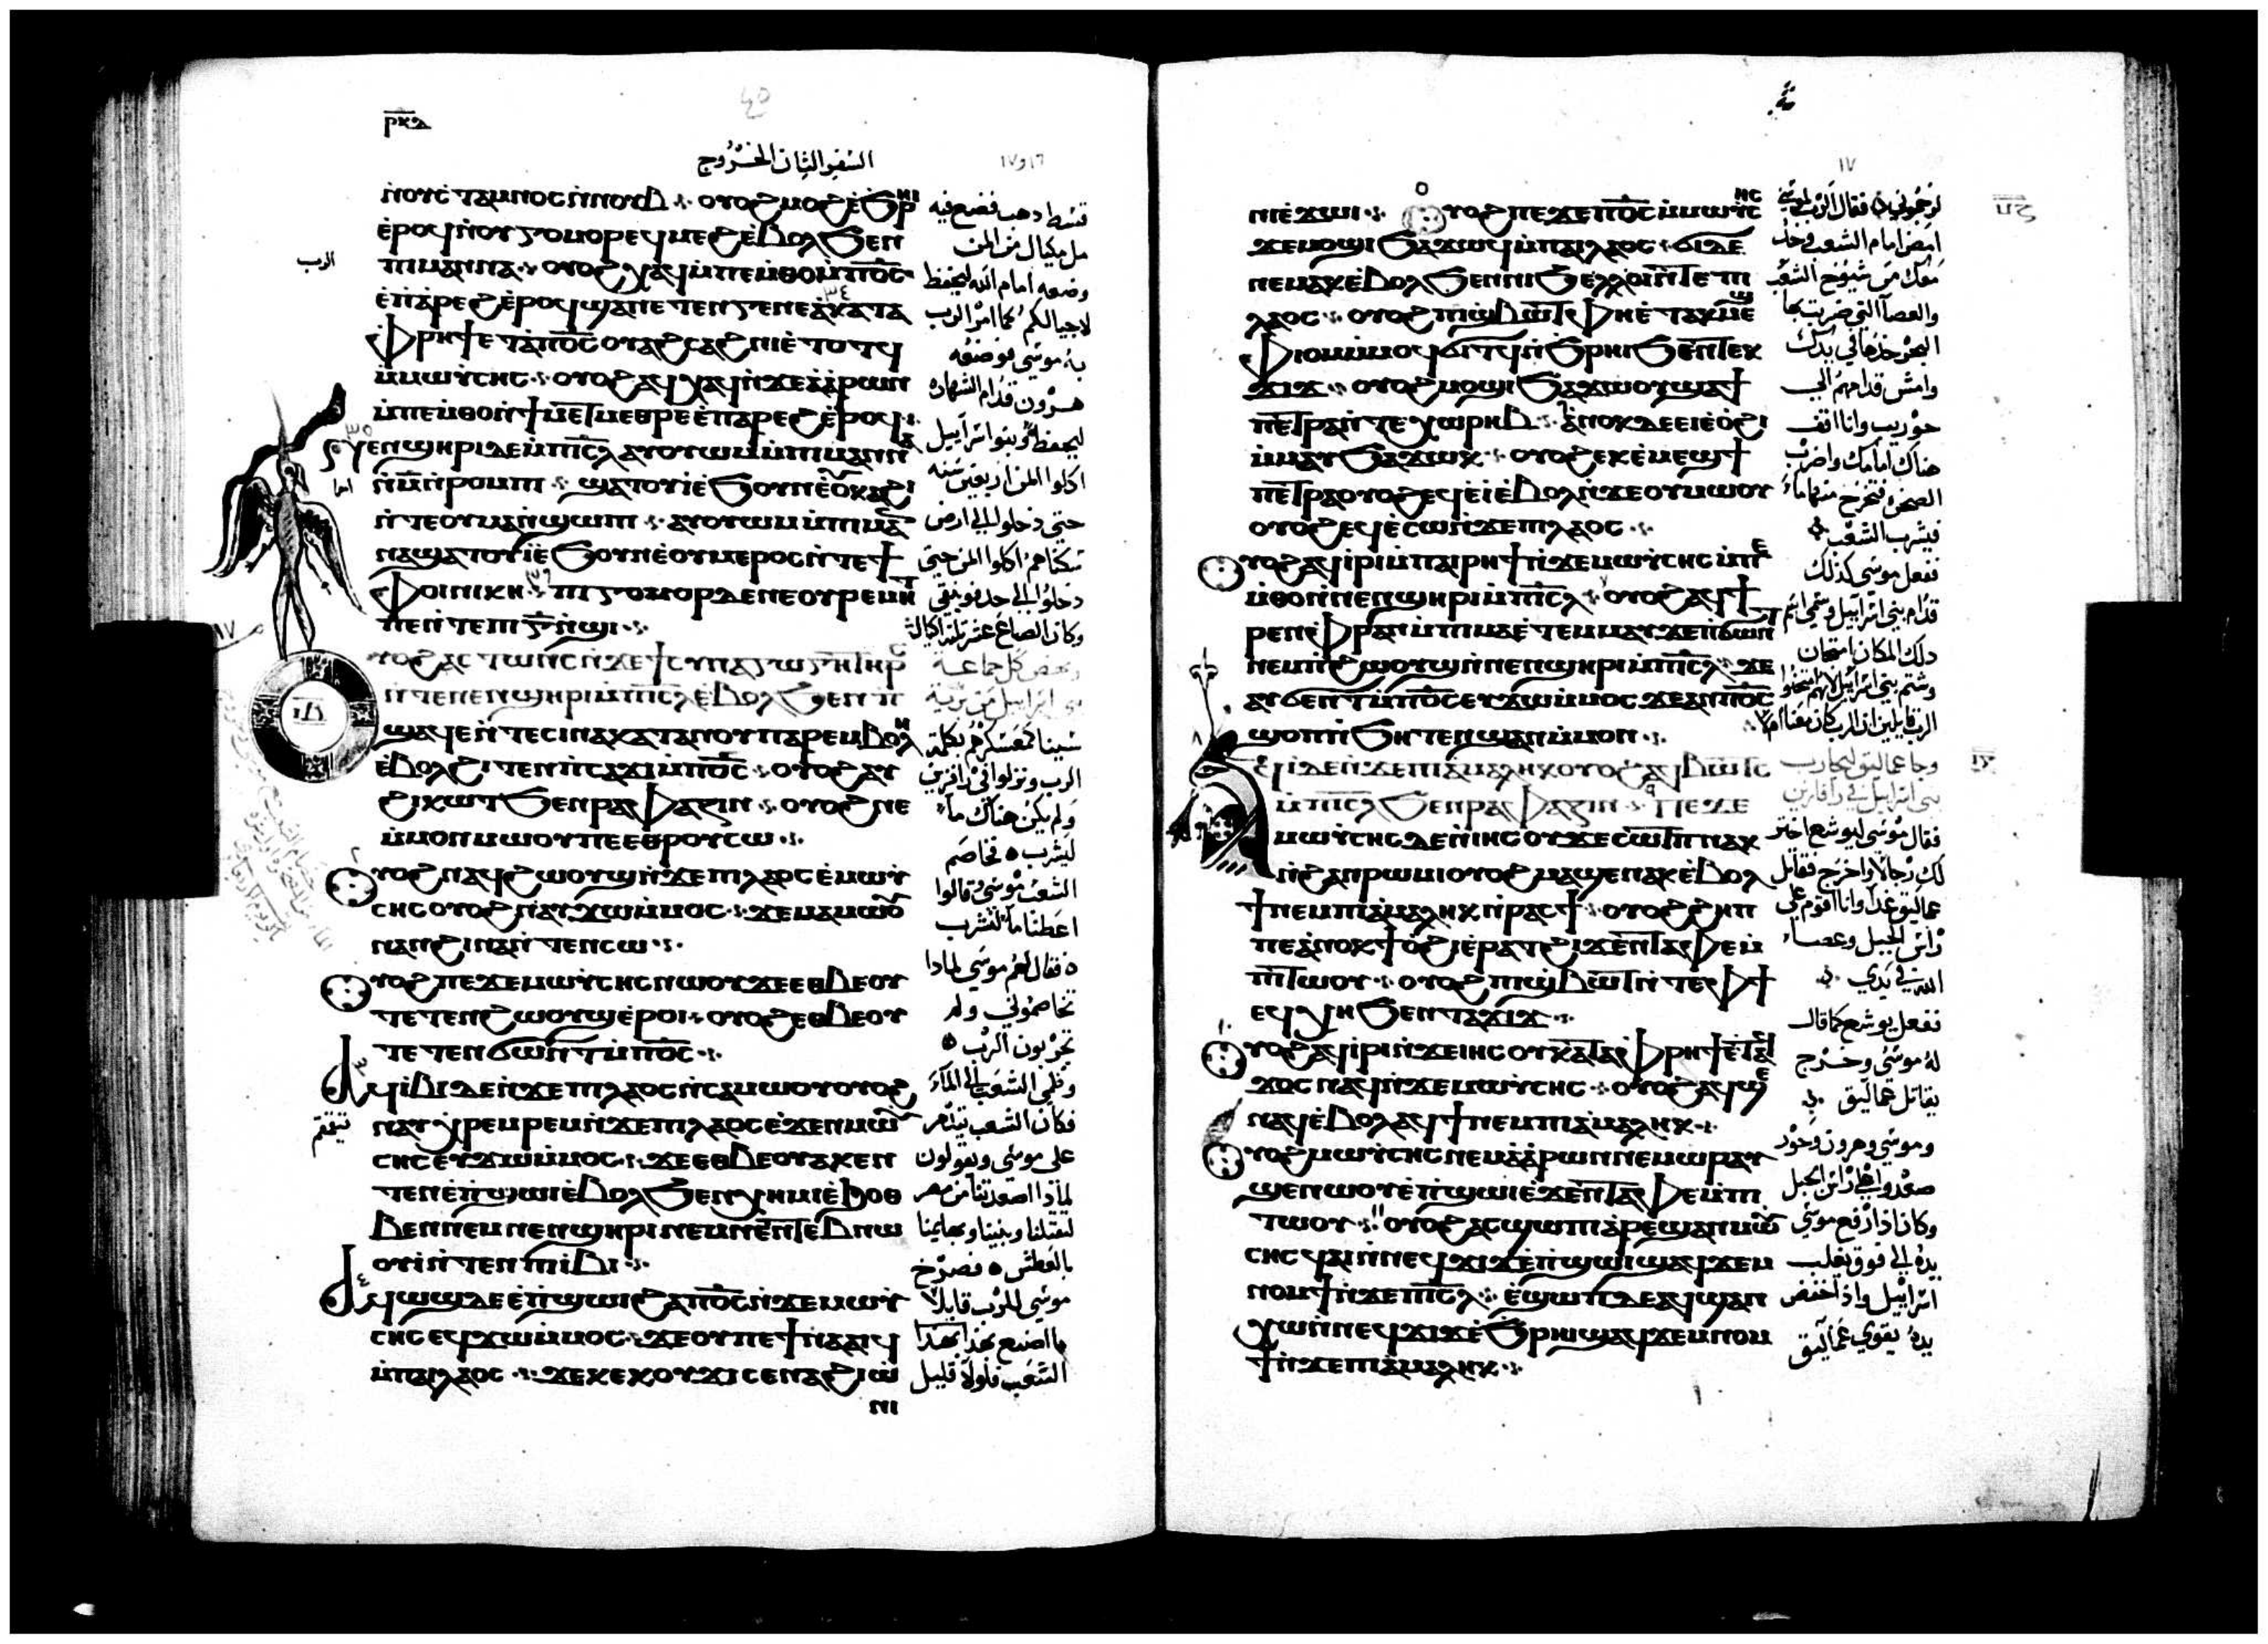 ⲣⲕⲇ
السفر الثانى الخروج
١٦ و١٧
ⲛ̀ⲟⲩⲥ̀ⲧⲁⲙⲛⲟⲥ ⲛ̀ⲛⲟⲩⲃ ⲟⲩⲟϩ ⲙⲟϩ ⲉ̀ϧⲣⲏⲓ
ⲉ̀ⲣⲟϥ ⲛ̀ⲟⲩⲅⲟⲙⲟⲣ ⲉϥⲙⲉϩ ⲉ̀ⲃⲟⲗ ϧⲉⲛ
ⲡⲓⲙⲁⲛⲛⲁ ⲟⲩⲟϩ ⲭⲁϥ ⲙ̀ⲡⲉⲙ̀ⲑⲟ ⲙ̀ⲡⲟ̅ⲥ̅
ⲉ̀ⲡ̀ⲁⲣⲉϩ ⲉ̀ⲣⲟϥ ϣⲁⲛⲉⲧⲉⲛⲅⲉⲛⲉⲁ̀ ⲕⲁⲧⲁ
ⲫⲣⲏϯ ⲉⲧⲁⲡⲟ̅ⲥ̅ ⲟⲩⲁϩⲥⲁϩⲛⲓ ⲉ̀ⲧⲟⲧϥ
ⲙ̀ⲙⲱⲩ̀ⲥⲏⲥ ⲟⲩⲟϩ ⲁϥⲭⲁϥ ⲛ̀ϫⲉⲁ̀ⲁ̀ⲣⲱⲛ
ⲙ̀ⲡⲉⲙ̀ⲑⲟ ⲛ̀ϯⲙⲉⲧⲙⲉⲑⲣⲉ ⲉ̀ⲡⲁⲣⲉϩ ⲉ̀ⲣⲟϥ
ⲛⲉⲛϣⲏⲣⲓ ⲇⲉ ⲙ̀ⲡⲓ̅ⲥ̅ⲗ̅ ⲁⲩⲟⲩⲱⲙ ⲙ̀ⲡⲓⲙⲁⲛⲛⲁ
ⲛ̀ⲙ̅ ⲛ̀ⲣⲟⲙⲡⲓ ϣⲁⲧⲟⲩⲓ̀ ⲉ̀ϧⲟⲩⲛ ⲉ̀ⲟⲩⲕⲁϩⲓ
ⲛ̀ⲧⲉⲟⲩⲙⲁⲛ̀ϣⲱⲡⲓ ⲁⲩⲟⲩⲱⲙ ⲙ̀ⲡⲓⲙⲁⲛ
ⲛⲁ ϣⲁⲧⲟⲩⲓ̀ ⲉ̀ϧⲟⲩⲛ ⲉ̀ⲟⲩⲙⲉⲣⲟⲥ ⲛ̀ⲧⲉϯ
ⲫⲟⲓⲛⲓⲕⲏ ⲡⲓⲅⲟⲙⲟⲣ ⲇⲉ ⲛⲉⲟⲩⲣⲉⲙⲏⲧ
ⲡⲉ ⲛ̀ⲧⲉⲡⲓⲅ̅ ⲛ̀ϣⲓ
ⲟⲩⲟϩ ⲁⲥⲧⲱⲛⲥ ⲛ̀ϫⲉϯⲥⲩⲛⲁⲅⲱⲅⲏ ⲧⲏⲣⲥ
ⲛ̀ⲧⲉⲛⲉⲛϣⲏⲣⲓ ⲙ̀ⲡⲓ̅ⲥ̅ⲗ̅ ⲉ̀ⲃⲟⲗ ϧⲉⲛ ⲡ
ϣⲁϥⲉ ⲛ̀ⲧⲉⲥⲓⲛⲁ ⲕⲁⲧⲁ ⲛⲟⲩⲡⲁⲣⲉⲙⲃⲟⲗⲏ
ⲉ̀ⲃⲟⲗ ϩⲓⲧⲉⲛ ⲡ̀ⲥⲁϫⲓ ⲙ̀ⲡⲟ̅ⲥ̅ ⲟⲩⲟϩ ⲁⲩ
ϩⲓⲕⲱⲧ ϧⲉⲛ ⲣⲁⲫⲁⲍⲓⲛ ⲟⲩⲟϩ ⲛⲉ
ⲙ̀ⲙⲟⲛ ⲙⲱⲟⲩ ⲡⲉ ⲉⲑⲣⲟⲩⲥⲱ
ⲟⲩⲟϩ ⲛⲁϥϩⲱⲟⲩϣ ⲛ̀ϫⲉⲡⲓⲗⲁⲟⲥ ⲉ̀ⲙⲱⲩ̀
ⲥⲏⲥ ⲟⲩⲟϩ ⲛⲁⲩϫⲱ ⲙ̀ⲙⲟⲥ ϫⲉⲙⲁⲙⲱⲟⲩ
ⲛⲁⲛ ϩⲓⲛⲁ ⲛ̀ⲧⲉⲛⲥⲱ
ⲟⲩⲟϩ ⲡⲉϫⲉⲙⲱⲩ̀ⲥⲏⲥ ⲛⲱⲟⲩ ϫⲉⲉⲑⲃⲉⲟⲩ
ⲧⲉⲧⲉⲛϩⲱⲟⲩϣ ⲉ̀ⲣⲟⲓ ⲟⲩⲟϩ ⲉⲑⲃⲉⲟⲩ
ⲧⲉⲧⲉⲛϭⲱⲛⲧ ⲙ̀ⲡⲟ̅ⲥ̅
ⲁϥⲓ̀ⲃⲓ ⲇⲉ ⲛ̀ϫⲉⲡⲓⲗⲁⲟⲥ ⲛ̀ⲥⲁⲙⲱⲟⲩ ⲟⲩⲟϩ
ⲛⲁⲩⲭⲣⲉⲙⲣⲉⲙ ⲛ̀ϫⲉⲡⲓⲗⲁⲟⲥ ⲉ̀ϫⲉⲛⲙⲱⲩ
ⲥⲏⲥ ⲉⲩϫⲱ ⲙ̀ⲙⲟⲥ ϫⲉⲉⲑⲃⲉⲟⲩ ⲁⲕⲉⲛ
ⲧⲉⲛ ⲉ̀ⲡ̀ϣⲱⲓ ⲉ̀ⲃⲟⲗ ϧⲉⲛ ⲭⲏⲙⲓ ⲉ̀ϧⲟⲑ
ⲃⲉⲛ ⲛⲉⲙ ⲛⲉⲛϣⲏⲣⲓ ⲛⲉⲙ ⲛⲉⲛⲧⲉⲃⲛⲱ
ⲟⲩⲓ̀ ⲛ̀ⲧⲉⲛⲡⲓⲃⲓ
ⲁϥⲱϣ ⲇⲉ ⲉ̀ⲡ̀ϣⲱⲓ ϩⲁⲡⲟ̅ⲥ̅ ⲛ̀ϫⲉⲙⲱⲩ̀
ⲥⲏⲥ ⲉϥϫⲱ ⲙ̀ⲙⲟⲥ ϫⲉⲟⲩ ⲡⲉϯⲛⲁⲁⲓϥ
ⲙ̀ⲡⲁⲓⲗⲁⲟⲥ ϫⲉⲕⲉⲕⲟⲩϫⲓ ⲥⲉⲛⲁϩⲓⲱ̀
ⲛⲓ
قسط ذهب فضع فيه
مل مكيال من المن
وضعه امام الله ليحفظ
لاجيالكم كما امر الرب
به موسى فوضعه
هرون قدام الشهاده
ليحفظ وبنو اسراييل
اكلوا المن اربعين سنه
حتى دخلوا الى ارض
سكناهم اكلوا المن حتى
دخلوا الى حد فونيقى
شيناء كمعسكرهم بكلمة
الرب ونزلوا فى رافزين
ولم يكن هناك ماء
ليشرب فخاصم
الشعب موسى وقالوا
اعطنا ماء لنشرب
فقال لهم موسى لمادا
تخاصمونى ولم
تجربون الرب
وظمى الشعب الى الماء
فكان الشعب يتذمر
على موسى ويقولون
لماذا اصعدتنا من مصر
لتقتلنا وبنينا وبهايمنا
بالعطش فصرخ
موسى للرب قايلا
ما اصنع بهذا
الشعب فلولا قليل
الرب
١٧
ⲛⲓⲉ̀ϫⲱⲓ ⲟⲩⲟϩ ⲡⲉϫⲉⲡⲟ̅ⲥ̅ ⲙ̀ⲙⲱⲩ̀ⲥⲏⲥ
ϫⲉⲙⲟϣⲓ ϧⲁϫⲱϥ ⲙ̀ⲡⲁⲓⲗⲁⲟⲥ ϭⲓ ⲇⲉ
ⲛⲉⲙⲁⲕ ⲉ̀ⲃⲟⲗ ϧⲉⲛ ⲛⲓϧⲉⲗⲗⲟⲓ ⲛ̀ⲧⲉ ⲡⲓ
ⲗⲁⲟⲥ ⲟⲩⲟϩ ⲡⲓϣⲃⲱⲧ ⲫⲏⲉ̀ⲧⲁⲕⲙⲉϣ
ⲫⲓⲟⲙ ⲙ̀ⲙⲟϥ ϭⲓⲧϥ ⲛ̀ϧⲣⲏⲓ ϧⲉⲛ ⲧⲉⲕ
ϫⲓϫ ⲟⲩⲟϩ ⲙⲟϣⲓ ϧⲁϫⲱⲟⲩ ϣⲁϯ
ⲡⲉⲧⲣⲁ ⲛ̀ⲧⲉⲭⲱⲣⲏⲃ ⲁ̀ⲛⲟⲕ ⲇⲉ ⲉⲓⲉ̀ⲟ̀ϩⲓ
ⲙ̀ⲙⲁⲩ ϧⲁϫⲱⲕ ⲟⲩⲟϩ ⲉⲕⲉ̀ⲙⲉϣϯ
ⲡⲉⲧⲣⲁ ⲟⲩⲟϩ ⲉϥⲉ̀ⲓ̀ ⲉ̀ⲃⲟⲗ ⲛ̀ϫⲉⲟⲩⲙⲱⲟⲩ
ⲟⲩⲟϩ ⲉϥⲉ̀ⲥⲱ ⲛ̀ϫⲉⲡⲓⲗⲁⲟⲥ
ⲟⲩⲟϩ ⲁϥⲓ̀ⲣⲓ ⲙ̀ⲡⲁⲓⲣⲏϯ ⲛ̀ϫⲉⲙⲱⲩ̀ⲥⲏⲥ ⲙ̀ⲡⲉ
ⲙ̀ⲑⲟ ⲛ̀ⲛⲉⲛϣⲏⲣⲓ ⲙ̀ⲡⲓ̅ⲥ̅ⲗ̅ ⲟⲩⲟϩ ⲁϥϯ
ⲣⲉⲛ ⲫⲣⲁⲛ ⲙ̀ⲡⲓⲙⲁ ⲉ̀ⲧⲉⲙⲙⲁⲩ ϫⲉⲡ̀ϭⲱⲛⲧ
ⲛⲉⲙ ⲡ̀ϩⲱⲟⲩϣ ⲛ̀ⲛⲉⲛϣⲏⲣⲓ ⲙ̀ⲡⲓ̅ⲥ̅ⲗ̅ ϫⲉ
ⲁⲩϭⲉⲛⲧ ⲙ̀ⲡⲟ̅ⲥ̅ ⲉⲩϫⲱ ⲙ̀ⲙⲟⲥ ϫⲉⲁⲛ ⲡⲟ̅ⲥ̅
ϣⲟⲡ ⲛ̀ϧⲏⲧⲉⲛ ϣⲁⲛ ⲙ̀ⲙⲟⲛ
ⲁϥⲓ̀ ⲇⲉ ⲛ̀ϫⲉⲡⲓⲁ̀ⲙⲁⲗⲏⲕ ⲟⲩⲟϩ ⲁϥⲃⲱⲧⲥ
ⲙ̀ⲡⲓ̅ⲥ̅ⲗ̅ ϧⲉⲛ ⲣⲁⲫⲁⲍⲓⲛ ⲡⲉϫⲉ
ⲙⲱⲩ̀ⲥⲏⲥ ⲇⲉ ⲛ̀ⲓⲏⲥⲟⲩ ϫⲉⲥⲱⲧⲡ ⲛⲁⲕ
ⲛ̀ϩⲁⲛⲣⲱⲙⲓ ⲟⲩⲟϩ ⲙⲁϣⲉⲛⲁⲕ ⲉ̀ⲃⲟⲗ
ϯ ⲛⲉⲙ ⲡⲓⲁ̀ⲙⲁⲗⲏⲕ ⲛ̀ⲣⲁⲥϯ ⲟⲩⲟϩ ϩⲏⲡ
ⲡⲉ ⲁ̀ⲛⲟⲕ ϯⲟ̀ϩⲓ ⲉ̀ⲣⲁⲧ ϩⲓϫⲉⲛ ⲧⲁⲫⲉ ⲙ̀
ⲡⲓⲧⲱⲟⲩ ⲟⲩⲟϩ ⲡⲓϣⲃⲱⲧ ⲛ̀ⲧⲉⲫϯ
ⲉϥⲭⲏ ϧⲉⲛ ⲧⲁϫⲓϫ
ⲟⲩⲟϩ ⲁϥⲓ̀ⲣⲓ ⲛ̀ϫⲉⲓⲏⲥⲟⲩ ⲕⲁⲧⲁⲫⲣⲏϯ ⲉ̀ⲧⲁϥ
ϫⲟⲥ ⲛⲁϥ ⲛ̀ϫⲉⲙⲱⲩ̀ⲥⲏⲥ ⲟⲩⲟϩ ⲁϥϣⲉ
ⲛⲁϥ ⲉ̀ⲃⲟⲗ ⲁϥϯ ⲛⲉⲙ ⲡⲓⲁ̀ⲙⲁⲗⲏⲕ
ⲟⲩⲟϩ ⲙⲱⲩ̀ⲥⲏⲥ ⲛⲉⲙ ⲁ̀ⲁ̀ⲣⲱⲛ ⲛⲉⲙ ⲱⲣ ⲁⲩ
ϣⲉⲛⲱⲟⲩ ⲉ̀ⲡ̀ϣⲱⲓ ⲉ̀ϫⲉⲛ ⲧⲁⲫⲉ ⲙ̀ⲡⲓ
ⲧⲱⲟⲩ ⲟⲩⲟϩ ⲁⲥϣⲱⲡⲓ ⲁⲣⲉϣⲁⲛ ⲙⲱⲩ
ⲥⲏⲥ ϥⲁⲓ ⲛ̀ⲛⲉϥϫⲓϫ ⲉ̀ⲡ̀ϣⲱⲓ ϣⲁϥϫⲉⲙ
ⲛⲟⲙϯ ⲛ̀ϫⲉⲡⲓ̅ⲥ̅ⲗ̅ ⲉ̀ϣⲱⲡ ⲇⲉ ⲁϥϣⲁⲛ
ⲭⲱ ⲛ̀ⲛⲉϥϫⲓϫ ⲉ̀ϧⲣⲏⲓ ϣⲁϥϫⲉⲙⲛⲟⲙ
ϯ ⲛ̀ϫⲉⲡⲓⲁ̀ⲙⲁⲗⲏⲕ
يرجمونى فقال الرب لموسى
امض امام الشعب وخذ
معك من شيوخ الشعب
والعصا التى ضربت بها
البحر خذها فى يدك
وامش قدامهم الى
حوريب وانا اقف
هناك امامك واضرب
الصخره فتخرج منها ماء
فيشرب الشعب
ففعل موسى كذلك
قدام بنى اسراييل وسمى اسم
ذلك المكان امتحان
وجا عماليق ليحارب
بنى اسراييل فى رافازين
فقال موسى ليوشع اختر
لك رجالا واخرج فقاتل
عماليق غدا وانا اقوم على
راس الجبل وعصاء
الله فى يدى
ففعل يوشع كما قال
له موسى وخرج
يقاتل عماليق
وموسى وهرون وحور
صعدوا الى راس الجبل
وكان اذا رفع موسى
يده الى فوق يغلب
اسراييل واذا اخفض
يده يقوى عماليق